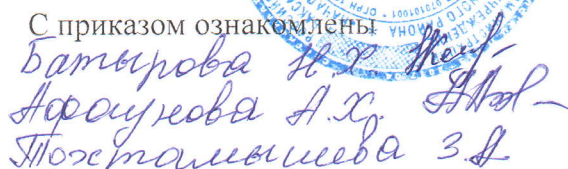 С приказом ознакомлены
Батырова Н.Х.
Афаунова А.Х.
Тохтамышева З.А